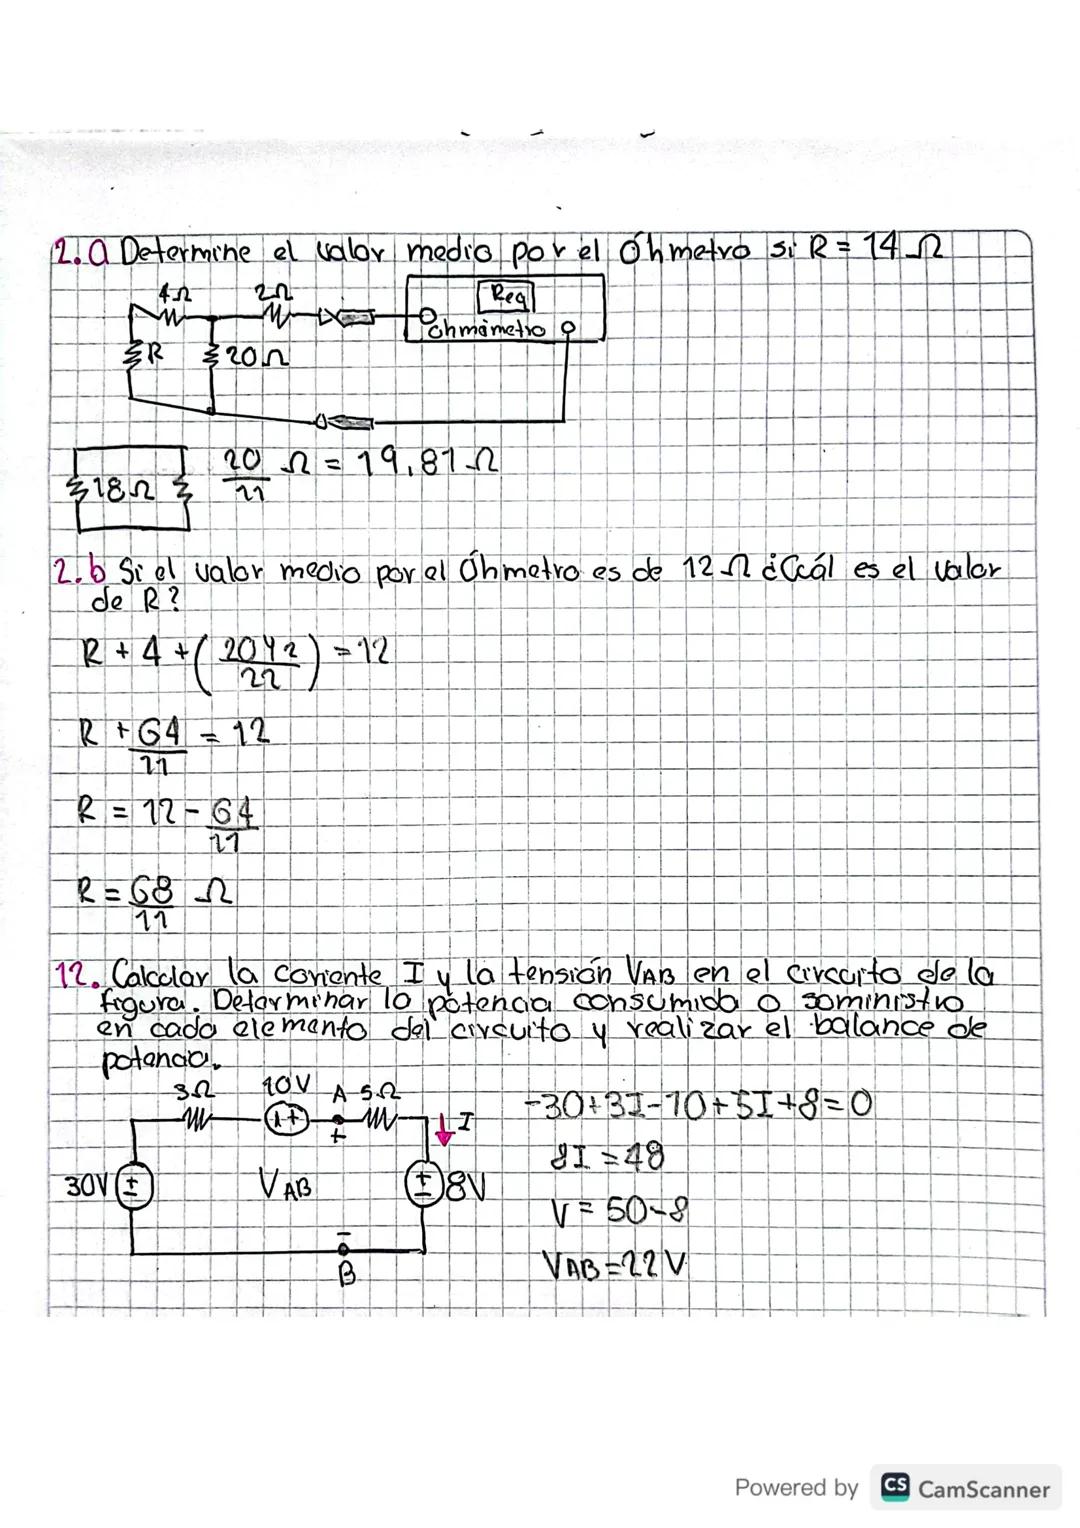 2.a Determine el valor medio por el Óhmetro si R = 14 Ω
4Ω 2Ω Req
ohmámetro
R 20Ω
18Ω 20/11 Ω = 19,81 Ω
2.b Si el valor medio por el Óhmetro es de 12 Ω ¿Cuál es el valor
de R?
R + 4 + (20×2/22) = 12
R + 64/11 = 12
R = 12 - 64/11
R = 68/11 Ω
12. Calcular la coriente I y la tensión VAB en el circuito de la
figura. Determinar lo potencia consumida o soministro
en cada elemento del circuito y realizar el balance de
potencia.
3Ω 10V A 5Ω
I
30V VAB 8V
B
-30+3I-10+5I+8=0
8I = 48
V = 50-8
VAB = 22 V
Powered by CS CamScanner